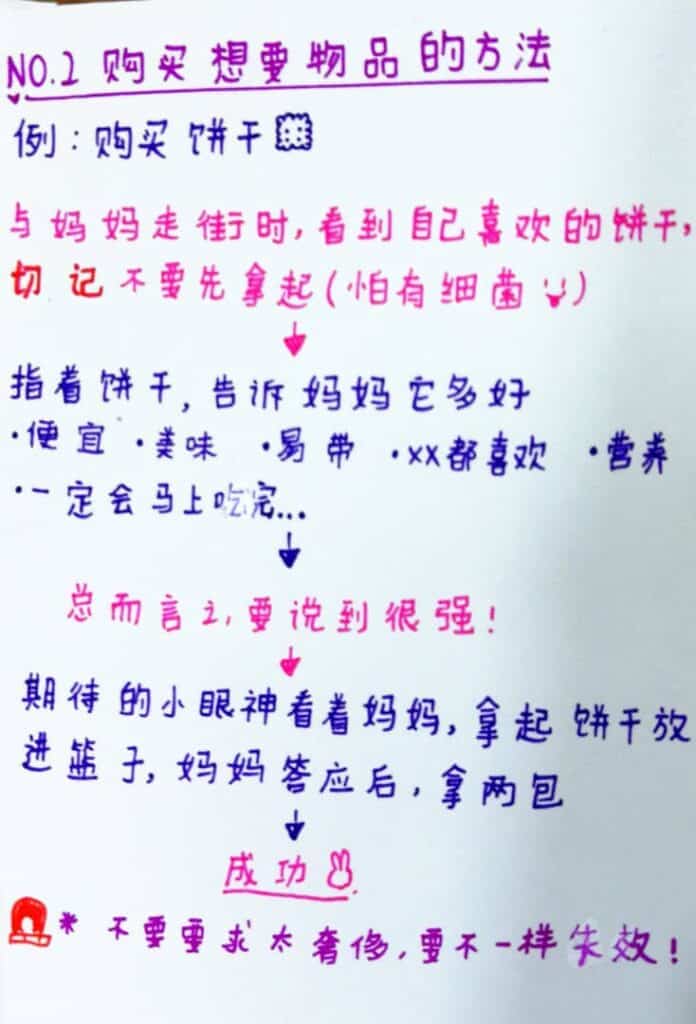 NO.2 购买想要物品的方法
例：购买饼干
与妈妈走街时,看到自己喜欢的饼干,
切记不要先拿起(怕有细菌)
指着饼干,告诉妈妈它多好
·便宜 ·美味 ·易带 ·xx都喜欢 ·营养
·一定会马上吃完...
总而言之,要说到很强!
期待的小眼神看着妈妈,拿起饼干放
进篮子,妈妈答应后,拿两包
成功
* 不要要求太奢侈,要不一样失效!